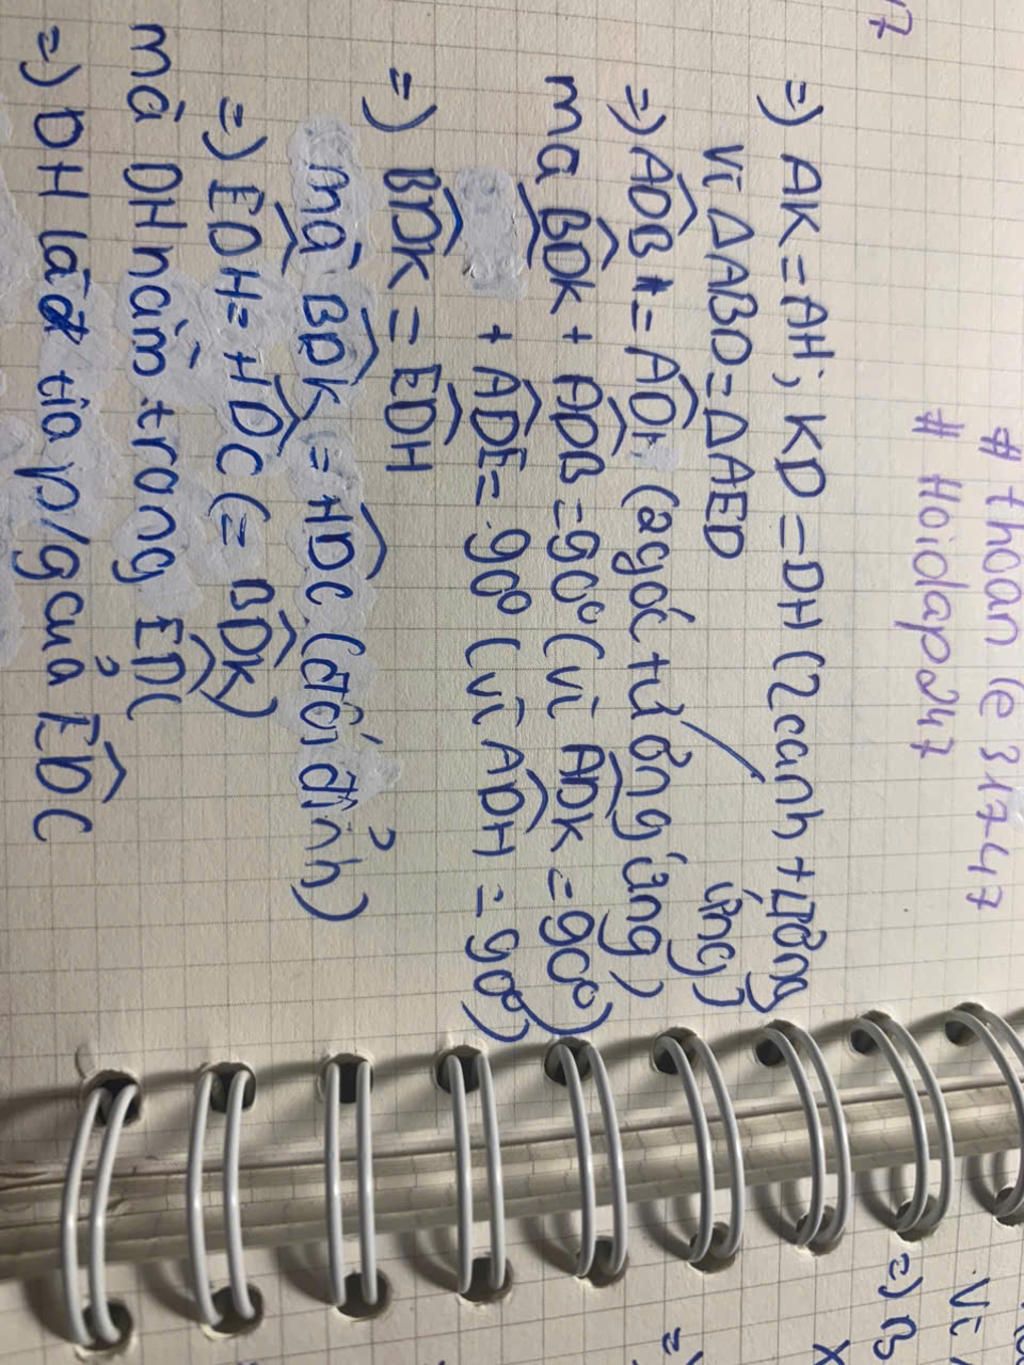 # thoan le 31747
# Hoidap247
=) AK = AH; KD = DH (2 cạnh tương
ứng)
Vì ΔABD = ΔAED
=) ADB = (2 góc tương ứng)
mà BDK + ADB = 90° (vì ADK = 90°)
+ ADE = 90° (vì ADH = 90°)
=) BDK = EDH
mà BDK = HDC (đối đỉnh)
=) EDH = HDC (= BDK)
mà DH nằm trong EDC
=) DH là tia p/g của EDC
Vì
=) B